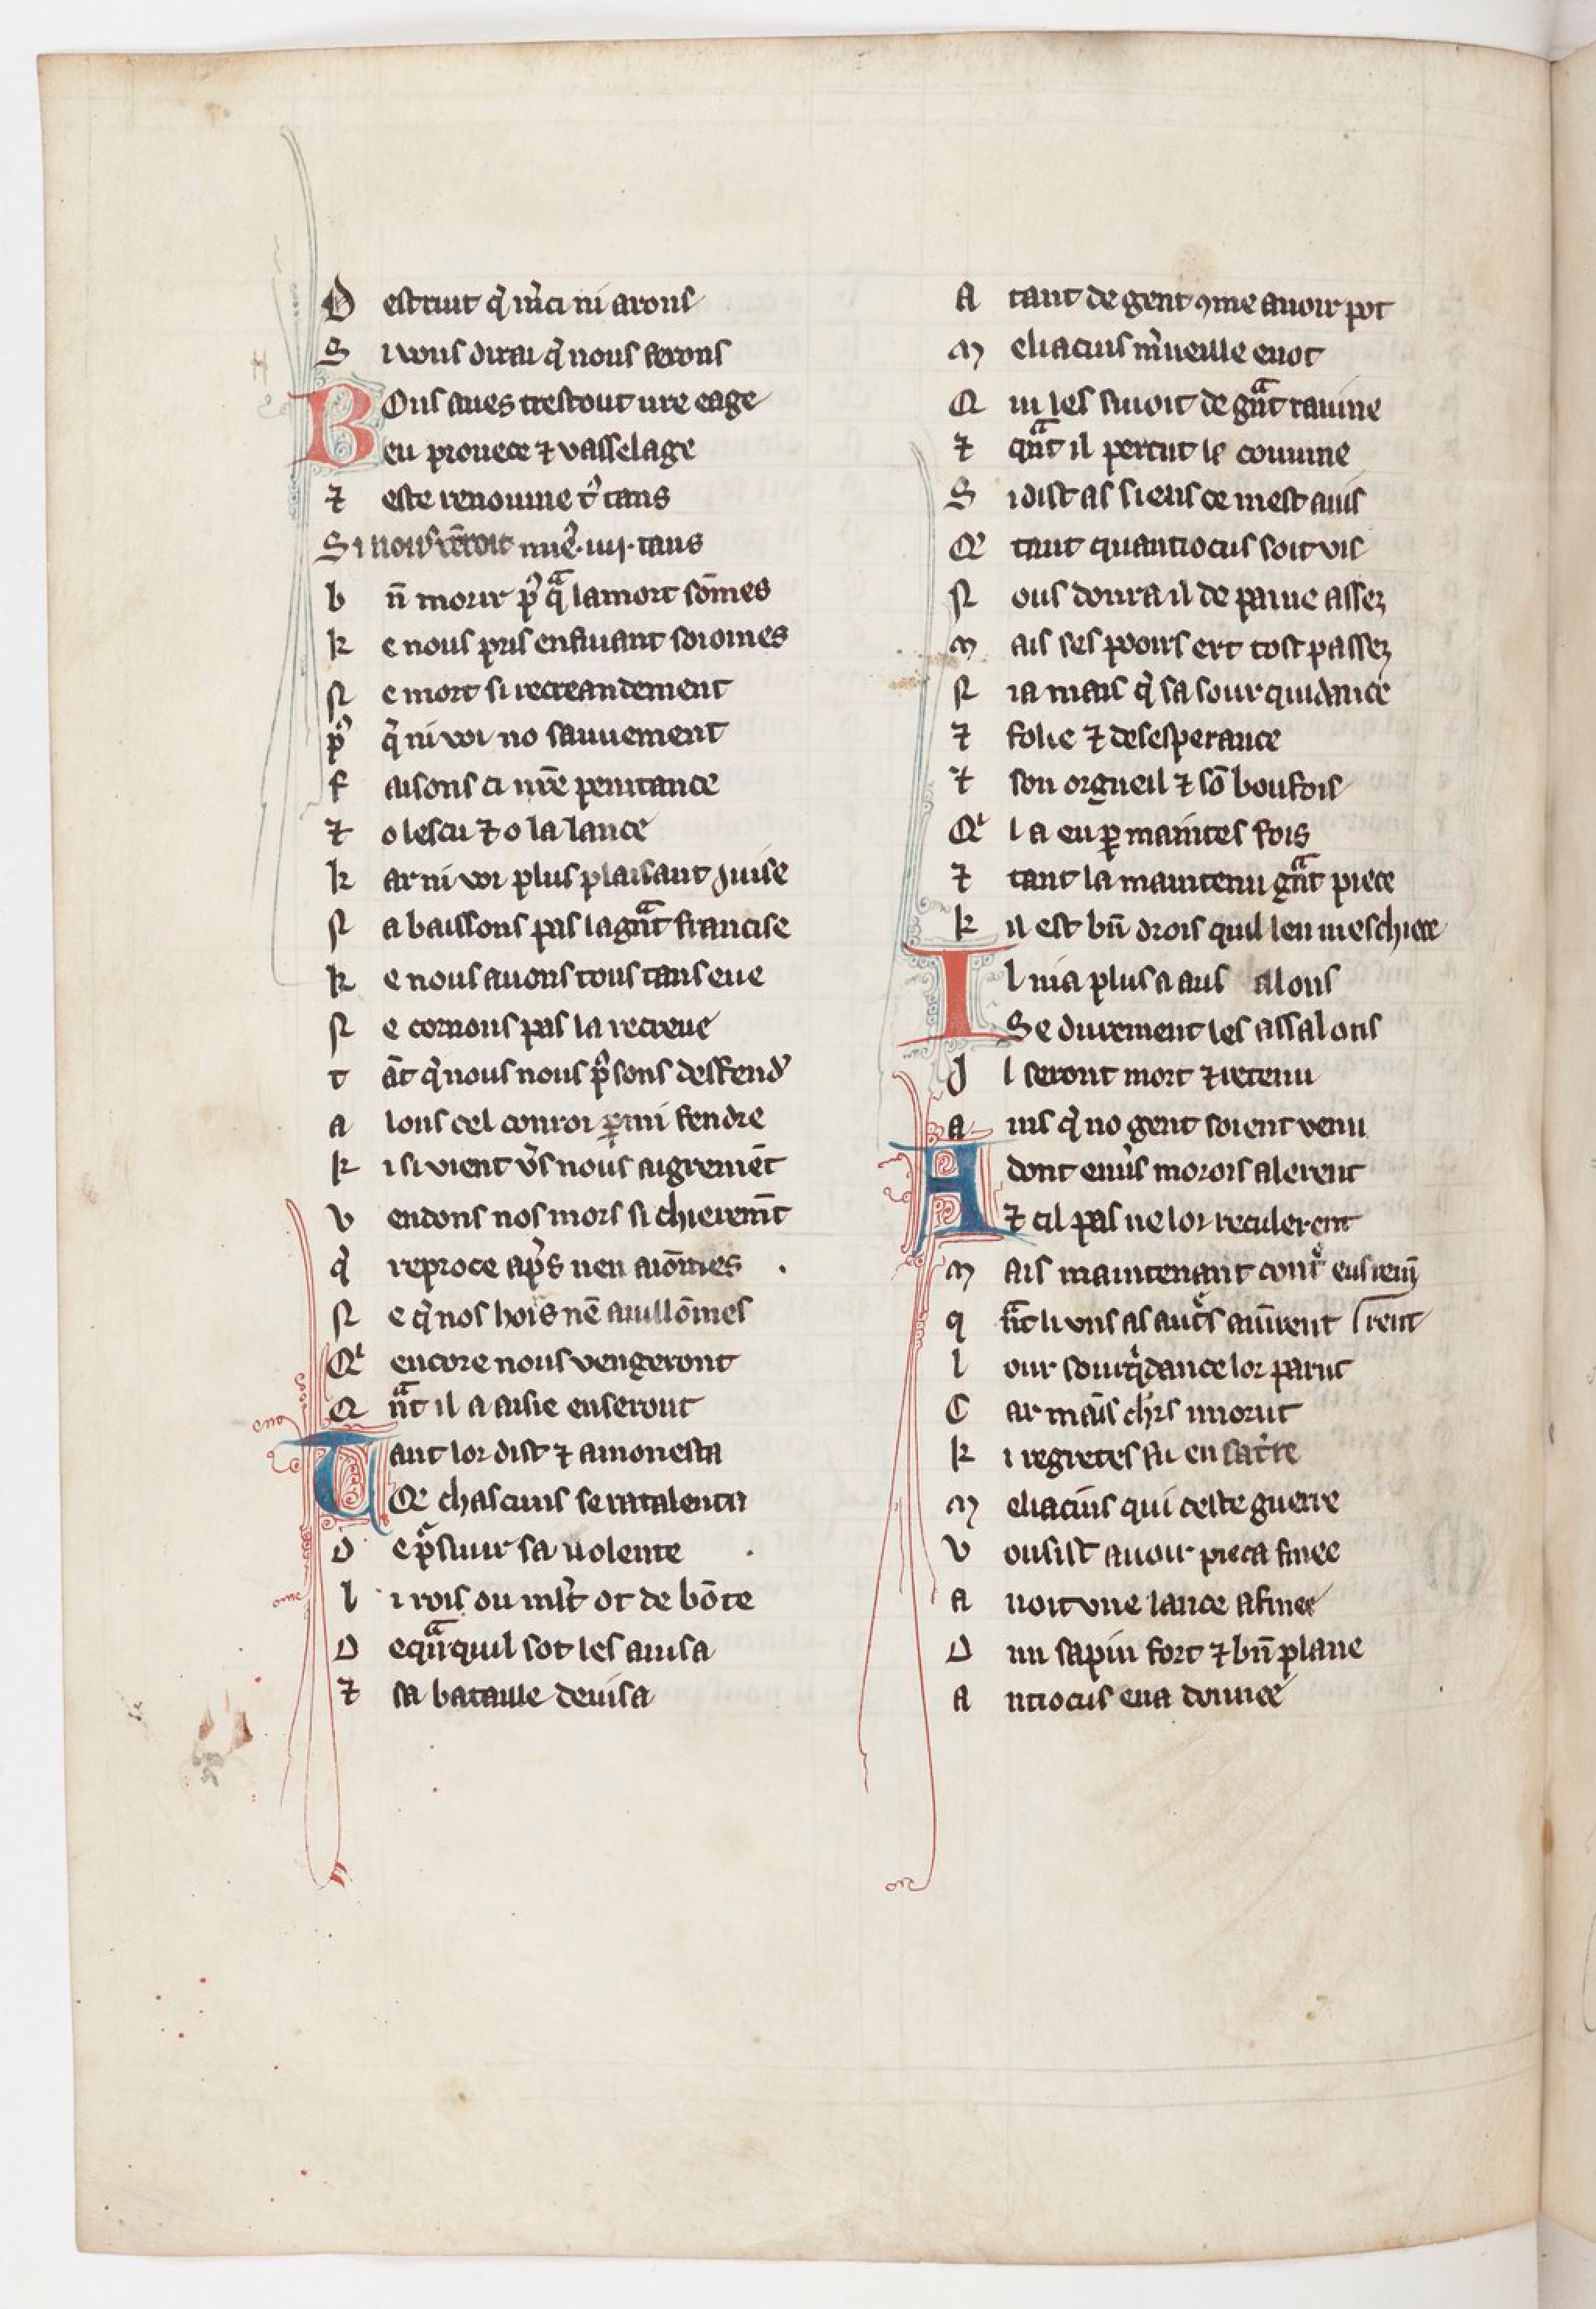 D estruit q̉ m̉ci ni arons
S i vous dirai q̉ nous ferons
BOus aues trestout vre eage
eu prouece ⁊ vasselage
⁊ este renoume t̉ tans
Si nous
b n̄ morir p̉ qͣ la mort sōmes
k e nous pris enfuiant soiomes
N e mort si recreandement
p̉ q̉ ni voi no sauuement
f aisons ci nr̄e penitance
⁊ o lescu ⁊ o la lance
k ar ni voi plus plaisant juise
N abaissons pas la gnͣt francise
k e nous auons tous tans eue
N e cornons pas la recreue
t āt q̉ nous nous p̉sons desfendʾ
a lons cel conroi ꝑmi fendre
k i si vient v̉s nous aigremēt
v endons nos mors si chierem̄t
q̉ reproce ap̉s nen aiōmes
N e q̉ nos hoirs nē auillōmes
Qͥ encore nous vengeront
Q nͣt il a aisie enseront
Tant lor dist ⁊ amonesta
Qe chascuns se ratalenta
D e pͬsiuir sa uolente
l i rois ou ml̉t ot de bōte
D equn̄quil sot les auisa
⁊ sa bataille deuisa
A tant de gent ꝯme auoir pot
M eliacius m̉ueille enot
Q ui les siuoit de gnͣt rauine
⁊ qnͣt il percut le couuine
S i dist as siens ce mest auis
Qe tant quantiocus soit vis
N ous donra il de paine assez
M ais ses pooirs ert tost passez
N ia mais q̉ sa sourquidance
⁊ folie ⁊ desesperance
⁊ son orgueil ⁊ sō boufois
Qͥ l a eu ꝑ maintes fois
⁊ tant la maintenu gnͣt piece
k il est bn̄ drois quil len meschiece
Il nia plus a aus alons
Se durement les assalons
J l seront mort ⁊ retenu
a ins q̉ no gent soient venu
Adont enủs morois alerent
⁊ cil pas ne lor reculerent
M ais maintenant contͬ eus
q n̄t li vns as autͬs auīrent
l our sourq̉dance lor parut
C ar māis ch̉rs imorut
k i regretes fu en sat̉re
M eliacius qui ceste guerre
v ousist auoir pieca finee
a uoit vne lance afinee
D un sapin fort ⁊ bn̄ plane
a ntiocus ena donnee